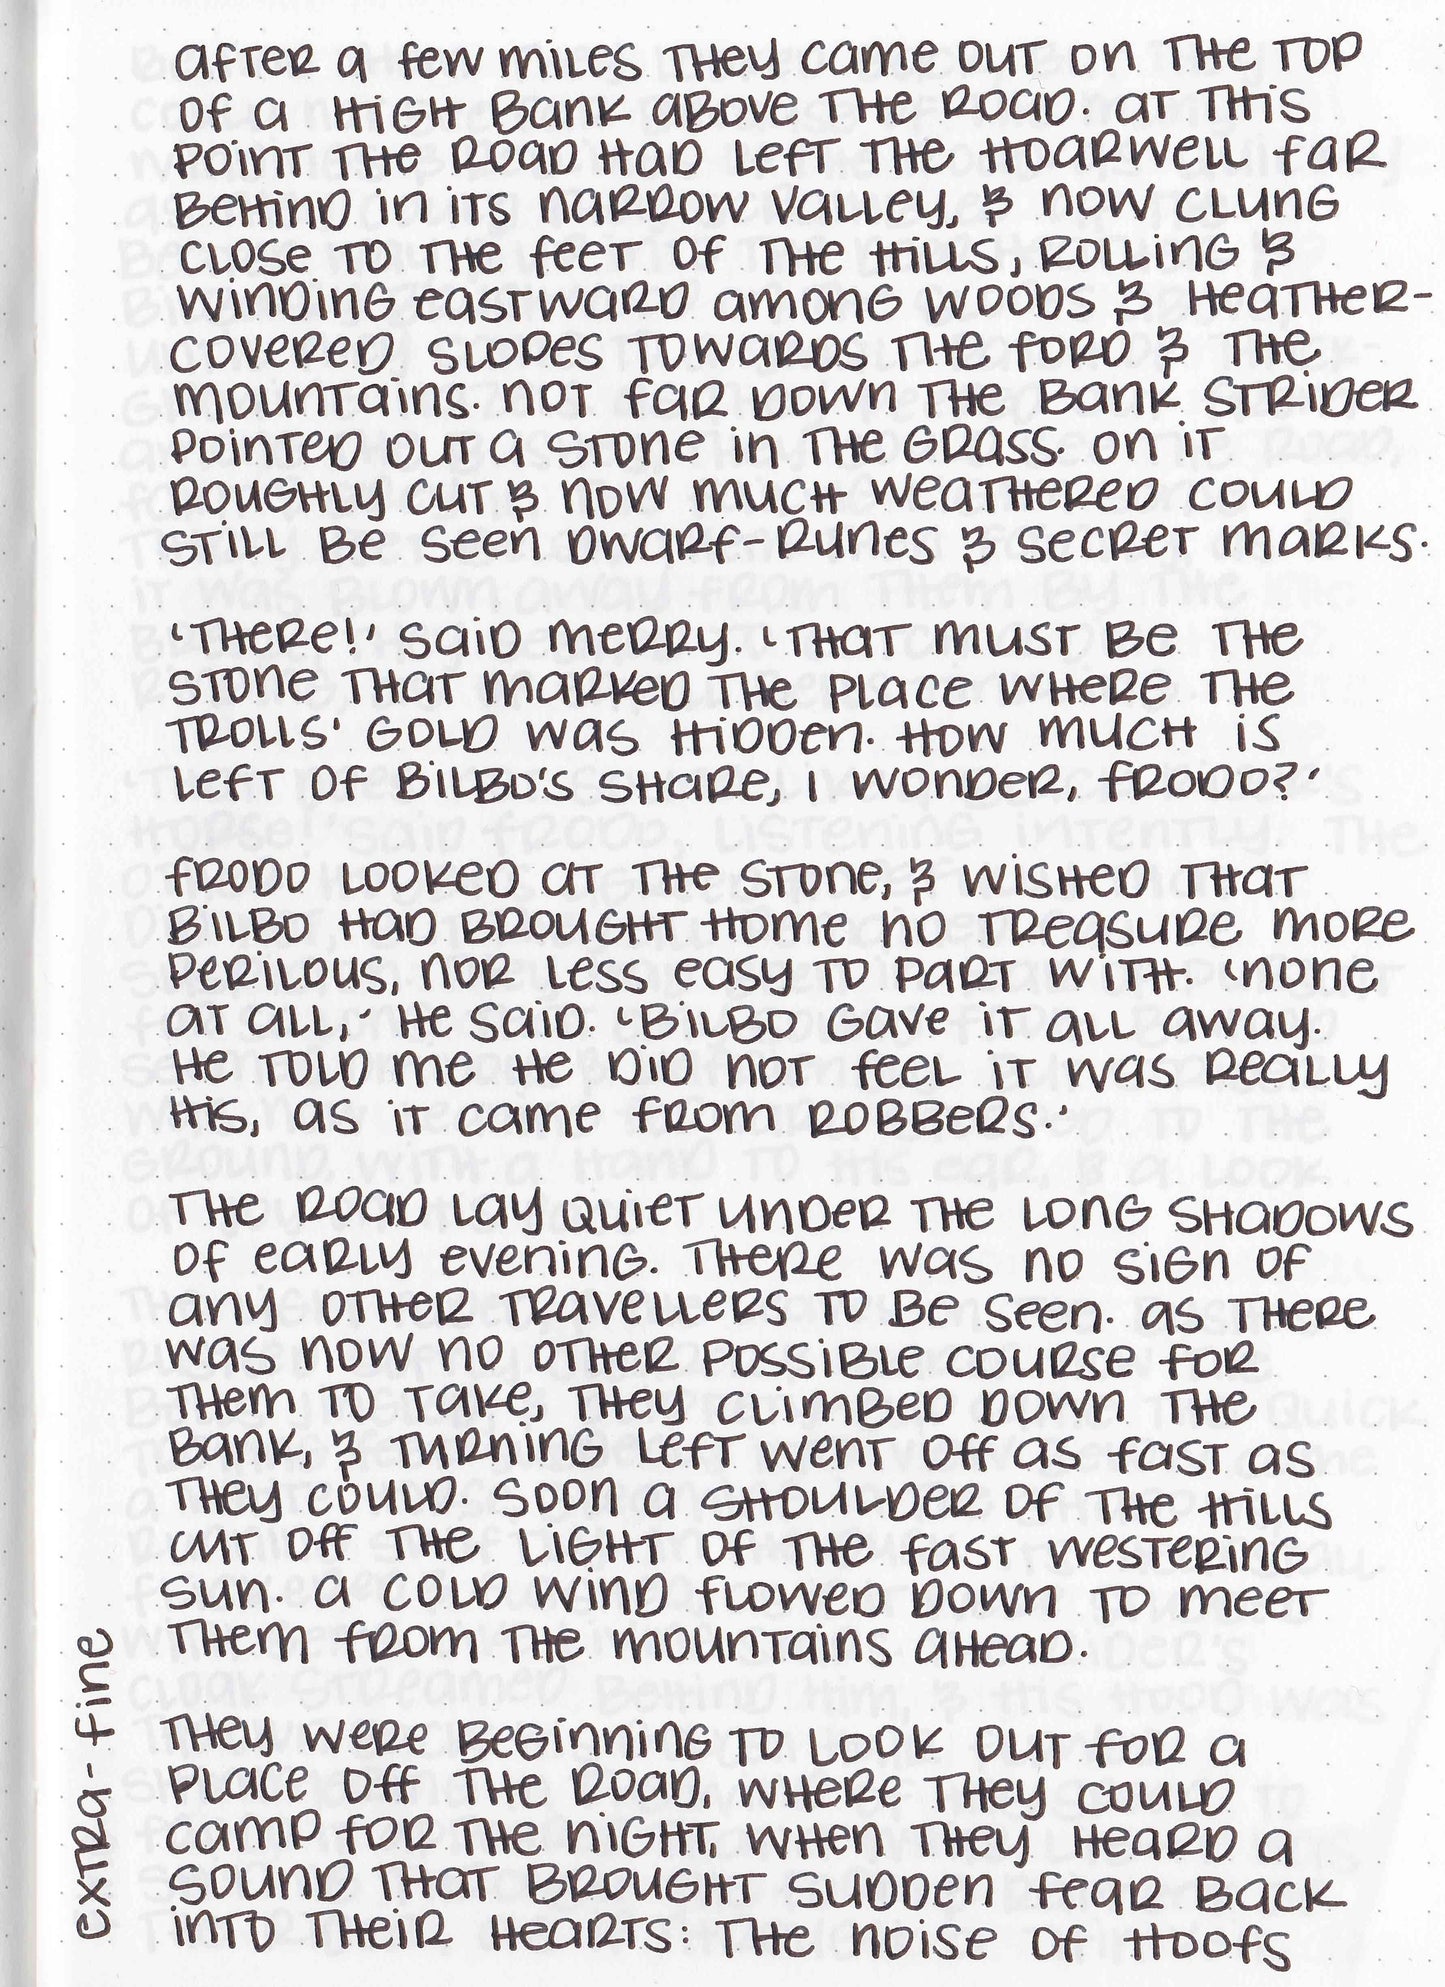 after a few miles they came out on the top
of a high bank above the road. at this
point the road had left the hoarwell far
behind in its narrow valley, & now clung
close to the feet of the hills, rolling &
winding eastward among woods & heather-
covered slopes towards the ford & the
mountains. not far down the bank strider
pointed out a stone in the grass. on it
roughly cut & now much weathered could
still be seen dwarf-runes & secret marks.
'there!' said merry. 'that must be the
stone that marked the place where the
trolls' gold was hidden. how much is
left of bilbo's share, i wonder, frodo?'
frodo looked at the stone, & wished that
bilbo had brought home no treasure more
perilous, nor less easy to part with. 'none
at all,' he said. 'bilbo gave it all away.
he told me he did not feel it was really
his, as it came from robbers.'
the road lay quiet under the long shadows
of early evening. there was no sign of
any other travellers to be seen. as there
was now no other possible course for
them to take, they climbed down the
bank, & turning left went off as fast as
they could. soon a shoulder of the hills
cut off the light of the fast westering
sun. a cold wind flowed down to meet
them from the mountains ahead.
they were beginning to look out for a
place off the road, where they could
camp for the night, when they heard a
sound that brought sudden fear back
into their hearts: the noise of hoofs
extra-fine